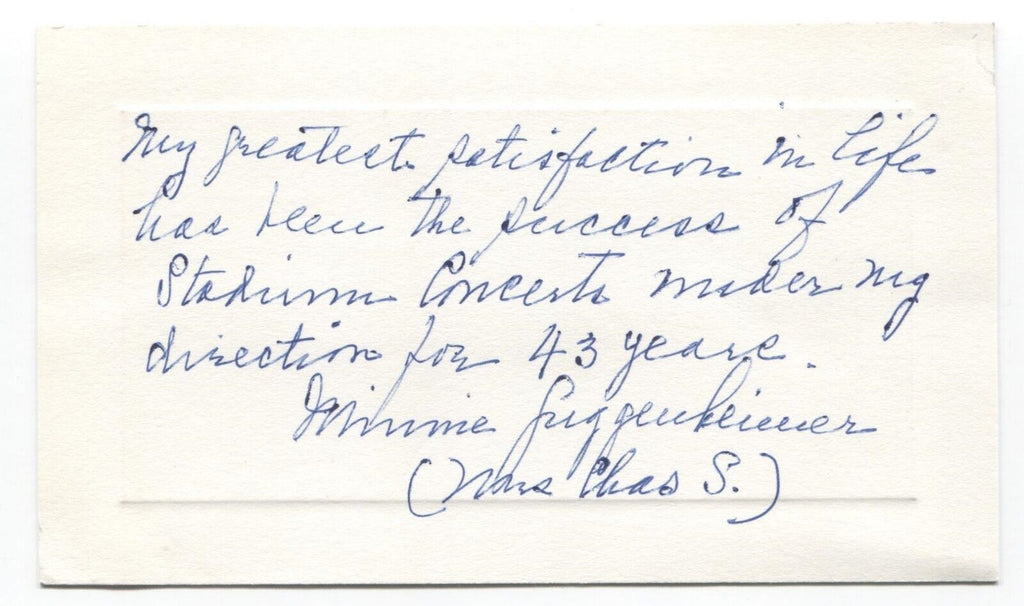 My greatest satisfaction in life
has been the success of
Stadium Concerts under my
direction for 43 years.
Minnie Guggenheimer
(Mrs Chas S.)